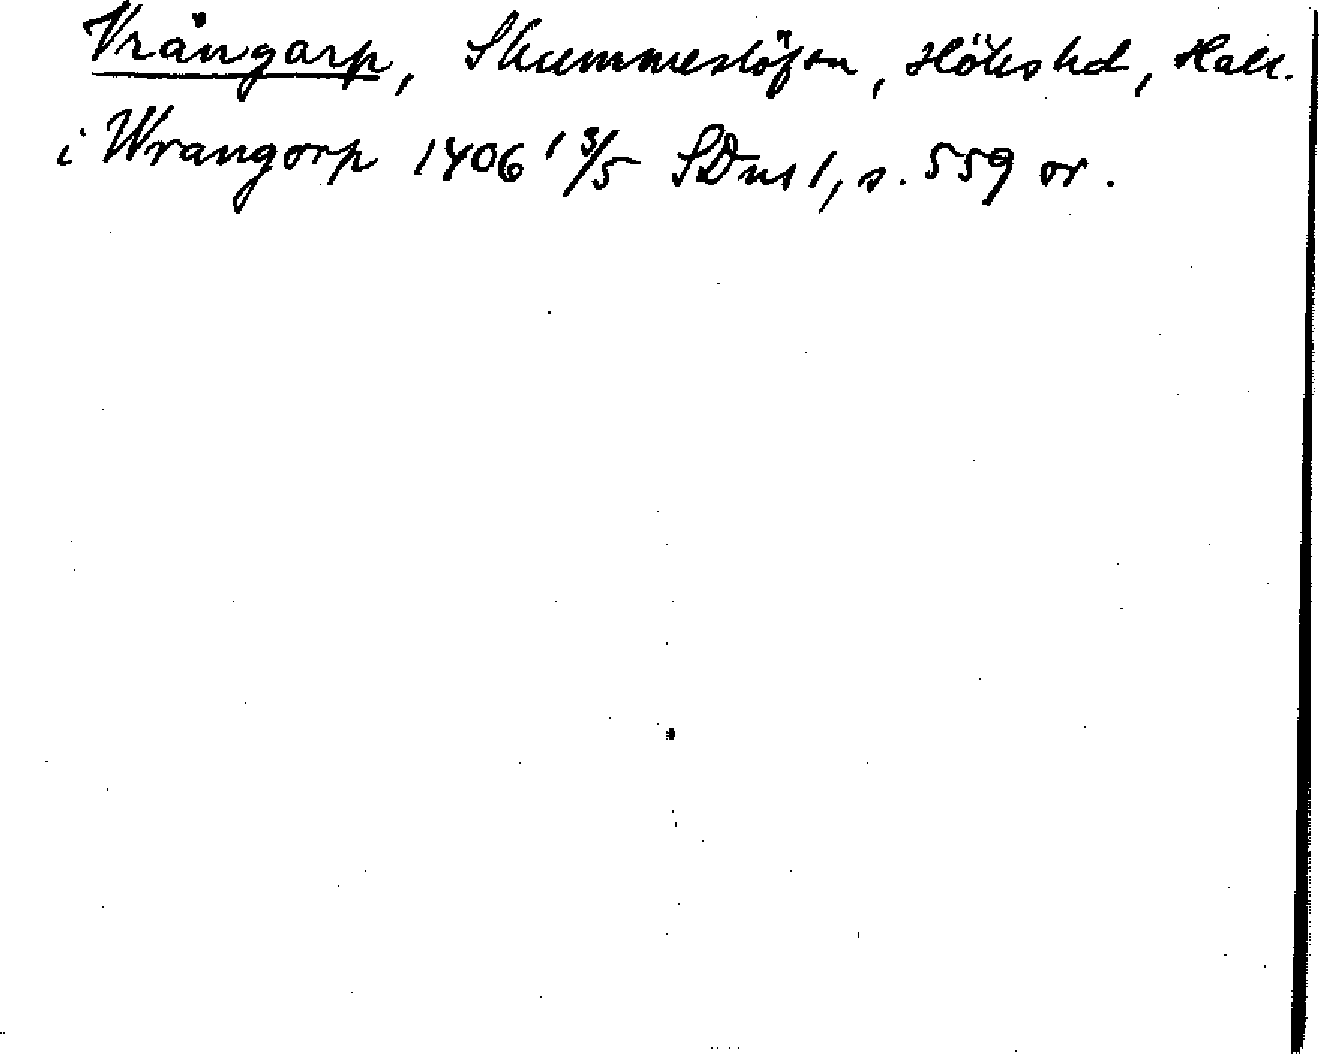 Vrångarp, Skummeslöfsn, Höks hd, Hall.
i Wrangorp 1406 13/5 SDns 1, s. 559 or.